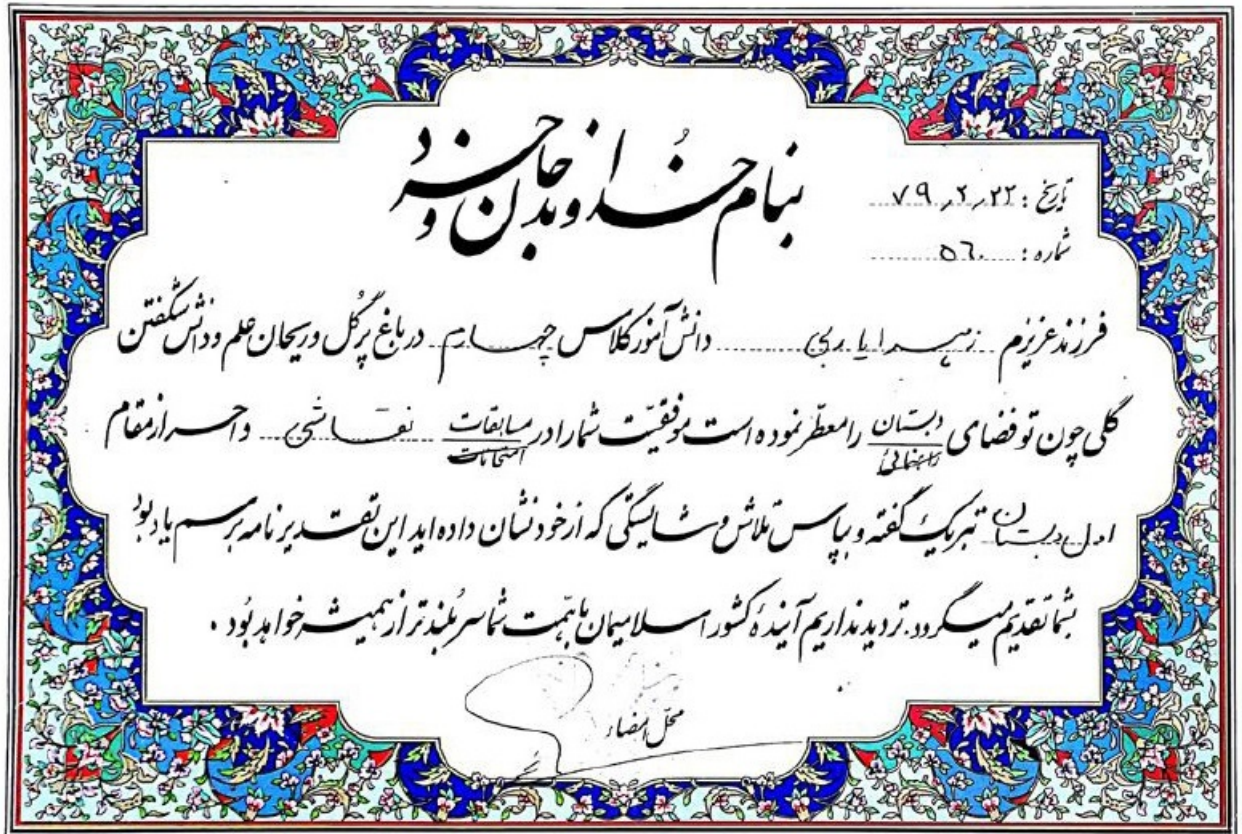 بنام خداوند جان و خرد
تاریخ : ۷۹,۲,۲۲
شماره : ۵۶۰
فرزند عزیزم زهرا یاری دانش آموز کلاس چهارم در باغ پرگل و ریحان علم و دانش شکفتن
گلی چون تو فضای دبستان راهنمائی را معطر نموده است موفقیت شما را در مسابقات امتحانات نقاشی و احراز مقام
اول دبستان تبریک گفته و بپاس تلاش و شایستگی که از خود نشان داده اید این تقدیر نامه برسم یادبود
بشما تقدیم میگردد. تردید نداریم آیندهٔ کشور اسلامیمان با همت شما سربلندتر از همیشه خواهد بود .
محل امضاء